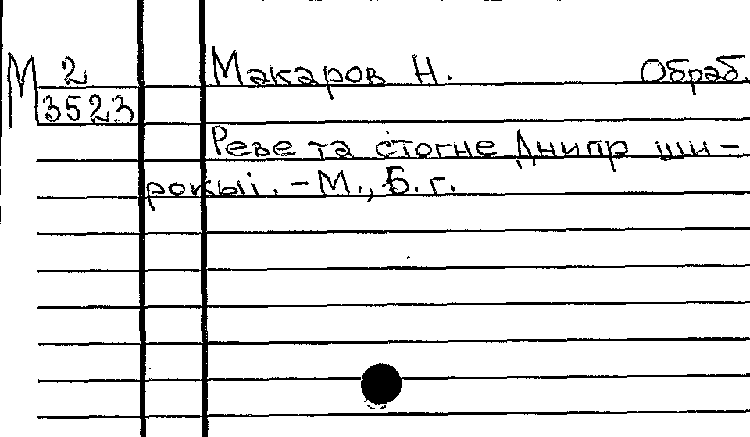 М 2
3523
Макаров Н. Обраб.
Реве та стогне Днипр ши-
рокыі. - М., Б. г.